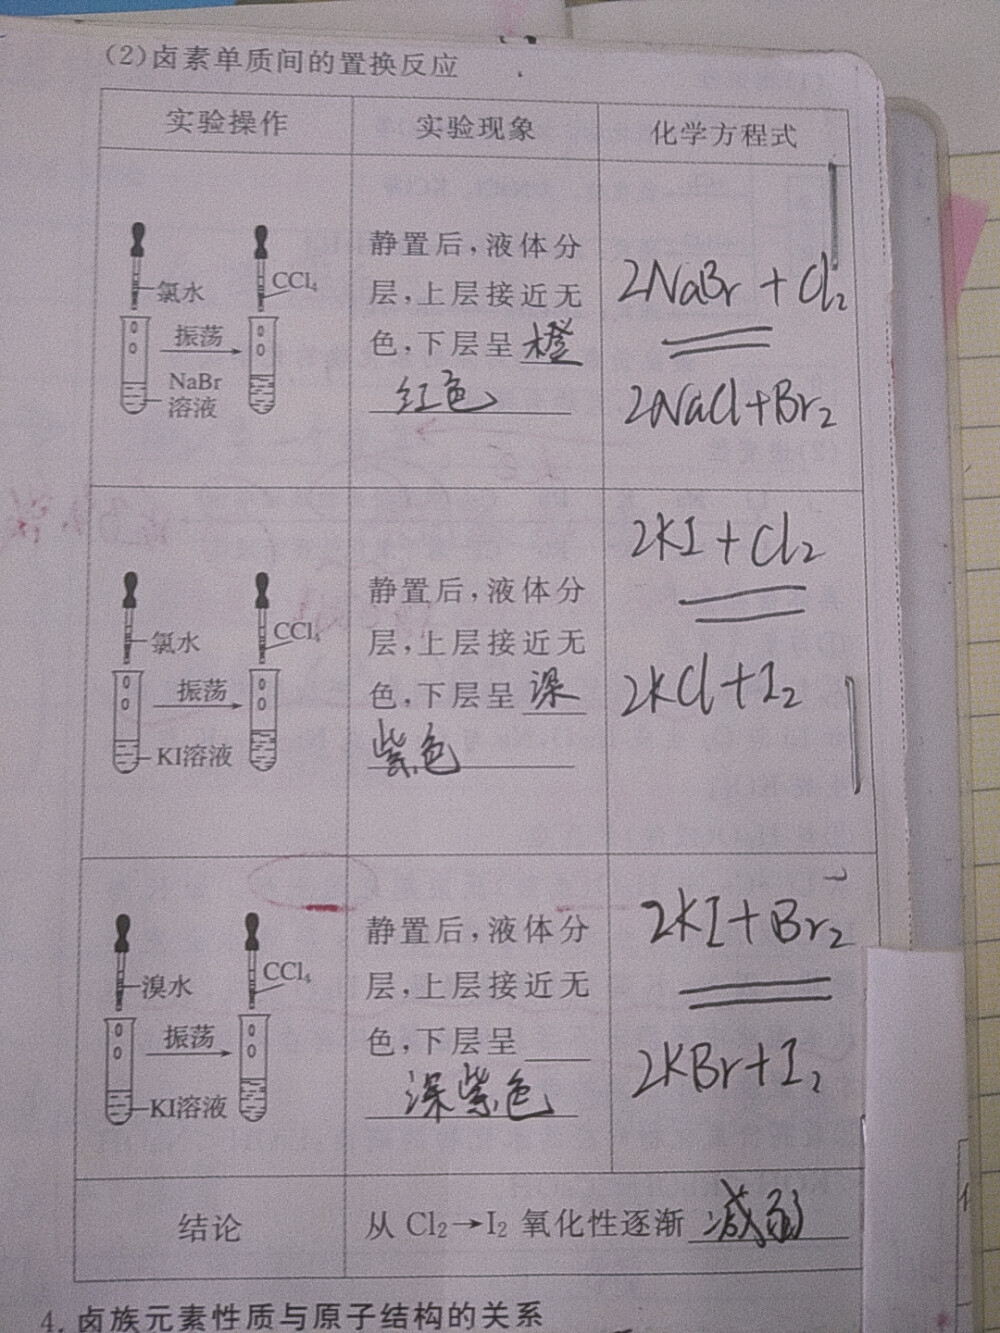 (2)卤素单质间的置换反应
实验操作
实验现象
化学方程式
氯水
CCl₄
振荡
NaBr
溶液
静置后,液体分
层,上层接近无
色,下层呈橙
红色
2NaBr + Cl₂
2NaCl+Br₂
氯水
CCl₄
振荡
KI溶液
静置后,液体分
层,上层接近无
色,下层呈深
紫色
2KI + Cl₂
2KCl+I₂
溴水
CCl₄
振荡
KI溶液
静置后,液体分
层,上层接近无
色,下层呈
深紫色
2KI+Br₂
2KBr+I₂
结论
从 Cl₂→I₂ 氧化性逐渐 减弱
4. 卤族元素性质与原子结构的关系